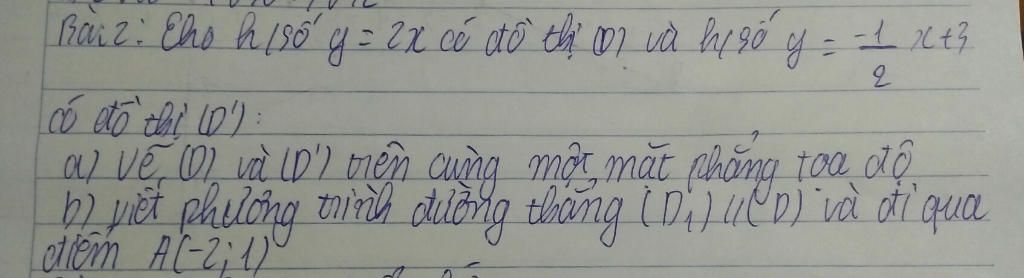 Bài 2: Cho h/số y = 2x có đồ thị (D) và h/số y = -1/2 x + 3
có đồ thị (D'):
a) Vẽ (D) và (D') trên cùng một mặt phẳng tọa độ
b) viết phương trình đường thẳng (D1) // (D) và đi qua
điểm A(-2; 1)